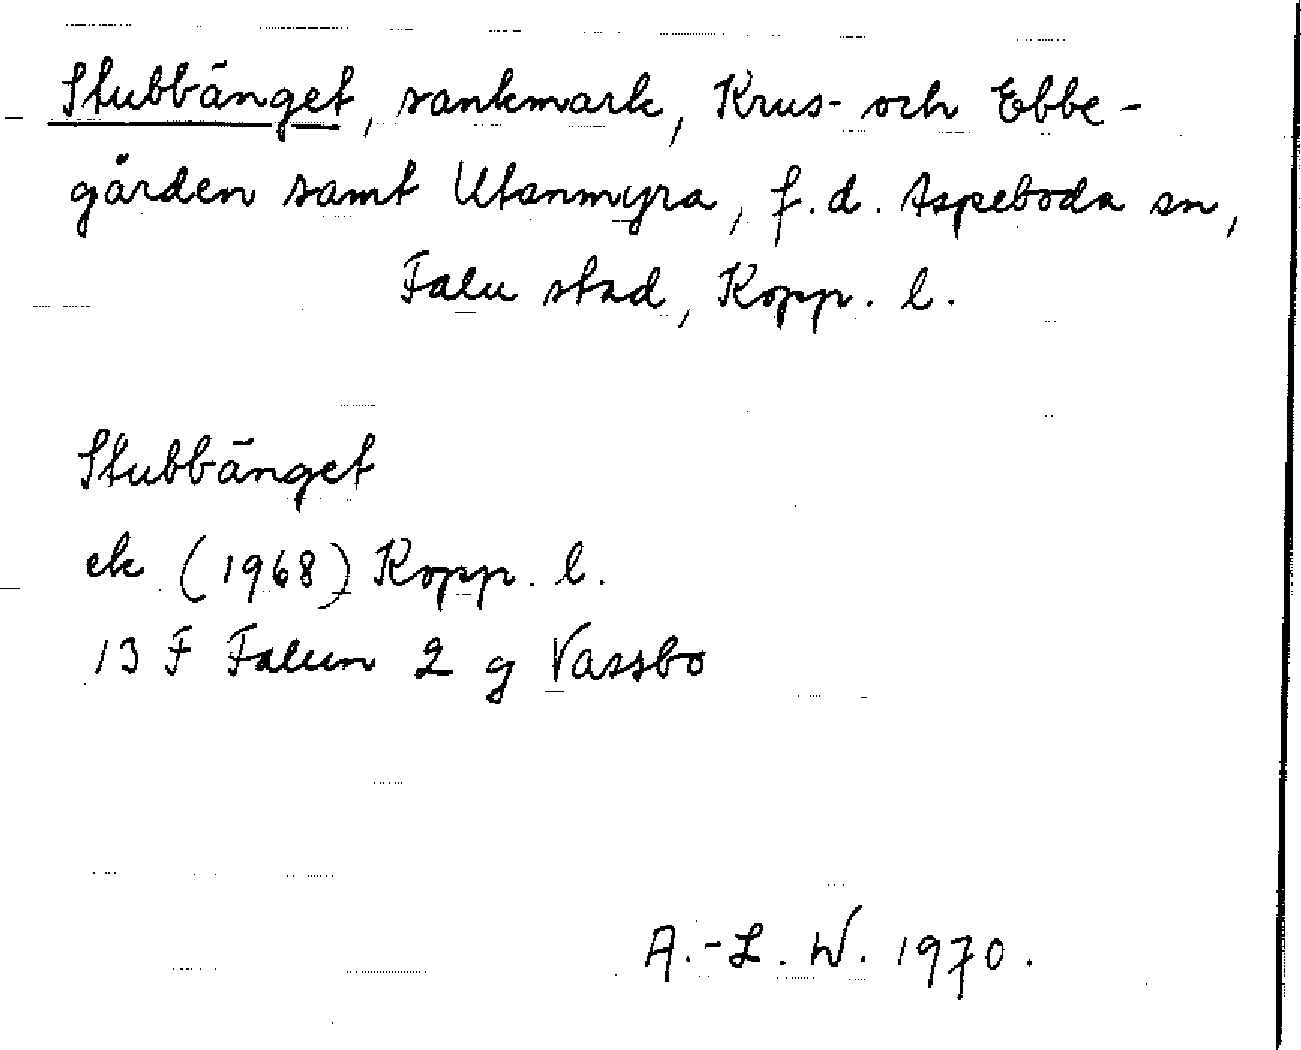 Stubbänget, sankmark, Krus- och Ebbe-
gården samt Utanmyra, f.d. Aspeboda sn,
Falu stad, Kopp. l.
Stubbänget
ek (1968) Kopp. l.
13 F Falun 2 g Vassbo
A.-L. W. 1970.